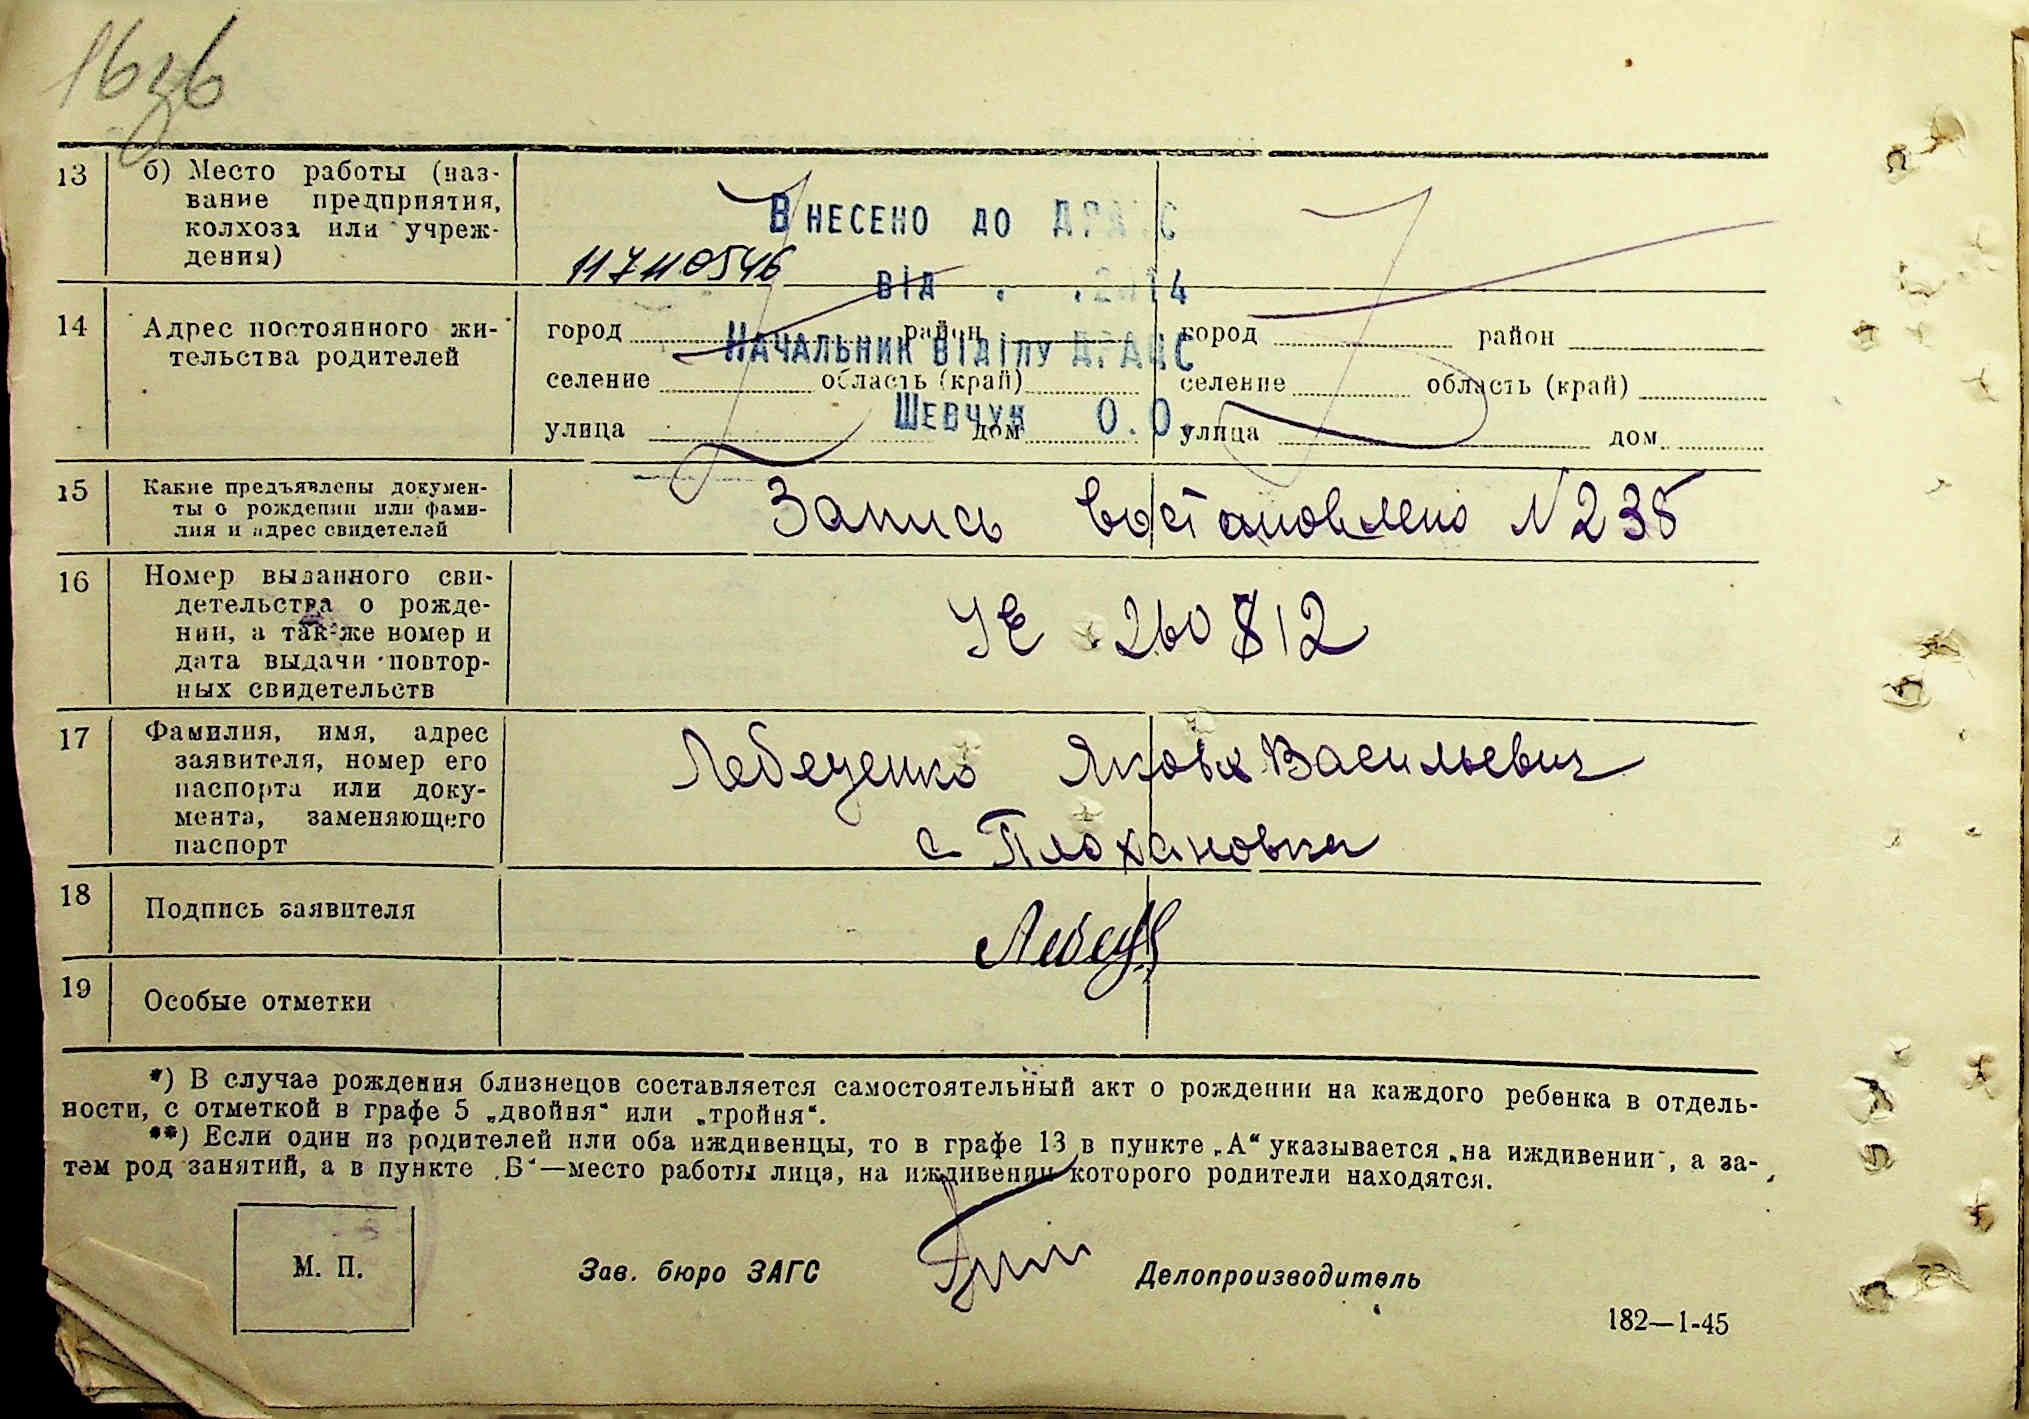 13 б) Место работы (наз-
вание предприятия,
колхоза или учреж-
дения)
Внесено до ДРАЦС
117110546
від . .2014
Начальник відділу ДРАЦС
Шевчук О.О.
14 Адрес постоянного жи-
тельства родителей
город район город район
селение область (край) селение область (край)
улица дом улица дом
15 Какие предъявлены докумен-
ты о рождении или фами-
лия и адрес свидетелей
Запись востановлено N 235
16 Номер выданного сви-
детельства о рожде-
нии, а так-же номер и
дата выдачи повтор-
ных свидетельств
УЕ 260812
17 Фамилия, имя, адрес
заявителя, номер его
паспорта или доку-
мента, заменяющего
паспорт
Яков Васильевич
с Плохановка
18 Подпись заявителя
19 Особые отметки
*) В случае рождения близнецов составляется самостоятельный акт о рождении на каждого ребенка в отдель-
ности, с отметкой в графе 5 „двойня“ или „тройня“.
**) Если один из родителей или оба иждивенцы, то в графе 13 в пункте „А“ указывается „на иждивении“, а за-
тем род занятий, а в пункте „Б“—место работы лица, на иждивении которого родители находятся.
М. П. Зав. бюро ЗАГС Делопроизводитель
182—1-45